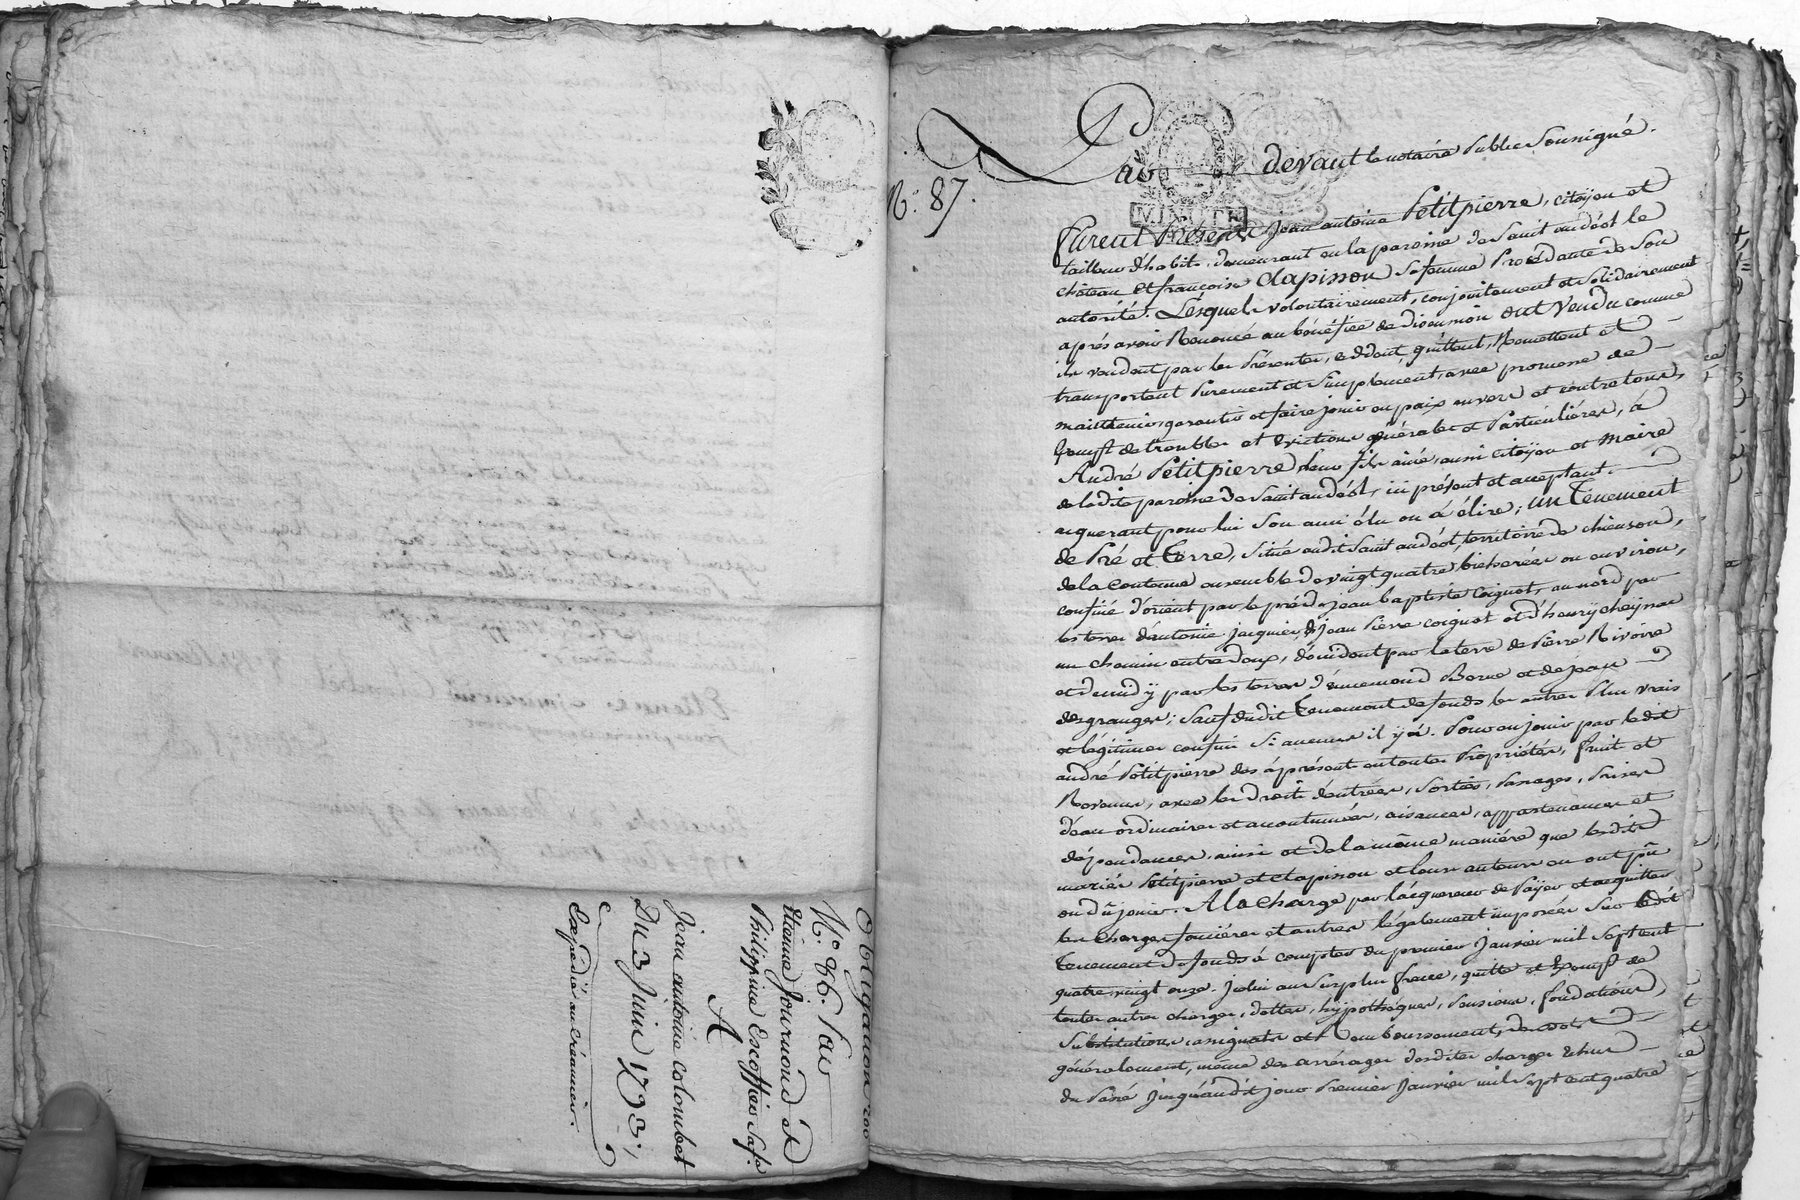 Obligation
N.º 86. Par
Etiéne Journoud et
Philippine Escoffier Sa fe
A
Jean antoine colombet
Du 3 Juin 1793,
Expédié au Créancier.
N.º 87.
MINUTE
Par devant le notaire Public Soussigné.
furent Présents Jean antoine Petitpierre, citoÿen et
tailleur d'habits, demeurant en la paroisse de Saint andéol le
château et françoise Clapisson Sa femme Procédante de Son
autorité. Lesquels volontairement, conjointement et Solidairement
aprés avoir Renoncé au bénéfice de division ont Vendu comme
ils vendent par les Présentes, cédent, quittent, Remettent et
transportent Purement et Simplement, avec promesse de
maintenir, garantir et faire jouir en paix envers et contre tous,
Exempt de troubles et Evictions générales et Particuliéres, à
André Petitpierre leur fils ainé, aussi citoÿen et Maire
de ladite paroisse de Saint andéol, ici présent et acceptant
acquerant pour lui Son ami élu ou à élire; un Tenement
de Pré et Terre, Situé audit Saint andéol, territoire de chienson,
de la Contenue ensemble de vingt quatre bicherées ou environ,
confiné d'orient par le pré de jean baptiste Coignet, au nord par
les terres d'antoine jacquier, de jean Pierre coignet et d'henry cheÿnas
un chemin entre deux, d'occident par la terre de Pierre Rivoire
et de midÿ par les terres d'ennemond Borne et de jean
desgranges; Sauf dudit Tenement de fonds les autres Plus vrais
et légitimes confins Si aucuns il ÿ a. Pour en jouir par ledit
andré Petitpierre des àprésent en toutes Propriétés, fruits et
Revenus, avec les droits d'entrées, Sorties, Passages, Prises
d'eau ordinaires et accoutumées, aisances, appartenances et
dépendances, ainsi et de la même maniére que lesdits
mariés Petitpierre et Clapisson et leurs auteurs en ont pû
ou dû jouir. A la charge par l'acquereur de Païer et acquitter
les charges fonciéres et autres légalement imposées Sur ledit
Tenement de fonds à compter du premier janvier mil Sept cent
quatre vingt onze. jcelui au Surplus franc, quitte et Exempt de
toutes autres charges, dettes, hÿpothéques, Pensions, fondations,
Substitutions, assignats et
généralement, même des arrérages desdites charges Echus
du Passé jusqu'audit jour Premier Janvier mil Sept cent quatre